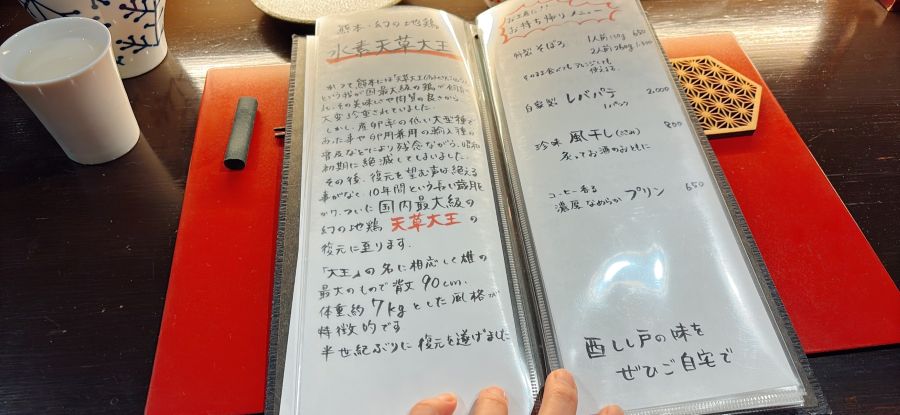 熊本・幻の地鶏
水素天草大王
かつて熊本には「天草大王
という我が国最大級の鶏が飼育
れ、その美味しさや肉質の良さから
大変珍重されていました。
しかし、産卵率の低い大型種で
あった事や卵用兼用の輸入種の
普及などにより残念ながら、昭和
初期に絶滅してしまいました。
その後、復元を望む声は絶える
事がなく、10年間という長い歳月を
かけ、ついに国内最大級の
幻の地鶏 天草大王の
復元に至ります。
「大王」の名に相応しく雄の
最大のもので背丈90cm、
体重約7kgとした風格が
特徴的です
半世紀ぶりに復元を遂げました
お土産に!!
お持ち帰りメニュー
特製 そぼろ 1人前 130g 650
2人前 260g 1.300
そのまま食べてもアレンジしても
使える
自家製 レバパテ 2.000
1パック
珍味 風干し(ささみ) 800
炙ってお酒のおともに
コーヒー香る
濃厚なめらか プリン 650
酉しし戸の味を
ぜひご自宅で